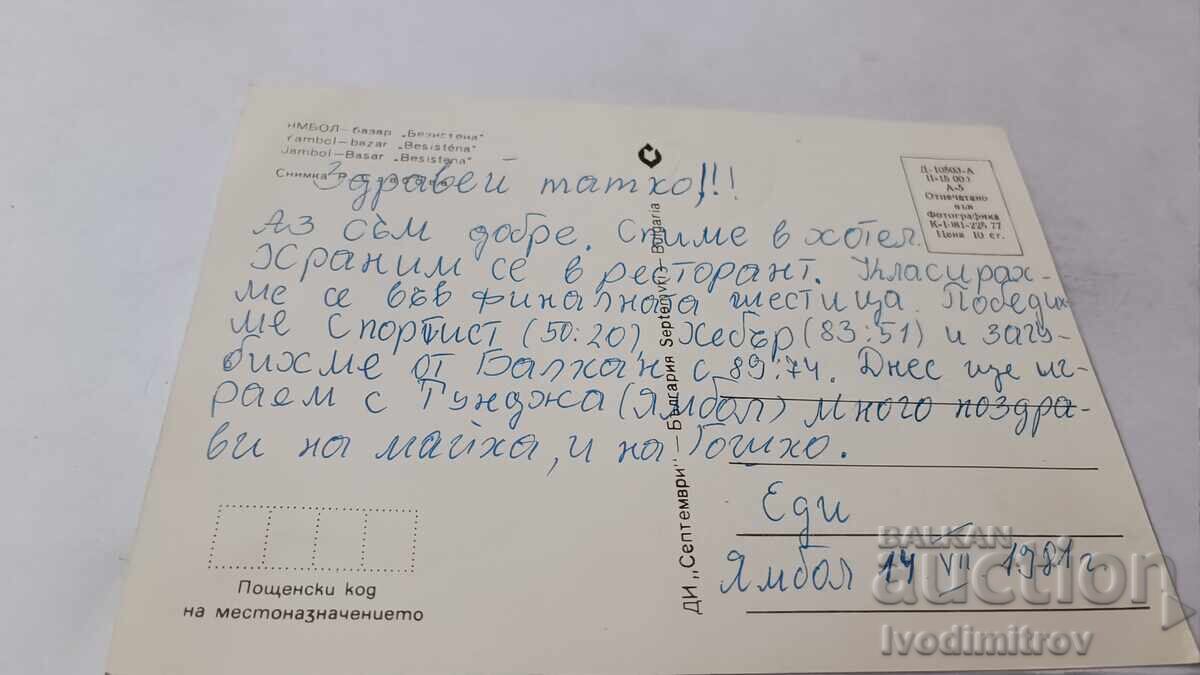 ЯМБОЛ — базар „Безистена"
Yambol — bazar „Besisténa"
Jambol — Basar „Besistena"
Снимка
Здравей татко!!!
Аз съм добре. Спиме в хотел.
Храним се в ресторант. Класирах-
ме се във финалната шестица. Победих-
ме Спортист (50:20), Хебър (83:51) и загу-
бихме от Балкан с 89:74. Днес ще иг-
раем с Тунджа (Ямбол) Много поздра-
ви на майка, и на Гошко.
Еди
Ямбол 14 VII 1981 г
Д-10503-А
П-15 003
А-5
Отпечатано
във
Фотографика
К-1-981-225 77
Цена 10 ст.
ДИ „Септември" — България Septemvri — Bulgaria
Пощенски код
на местоназначението
BALKAN
auction
Ivodimitrov